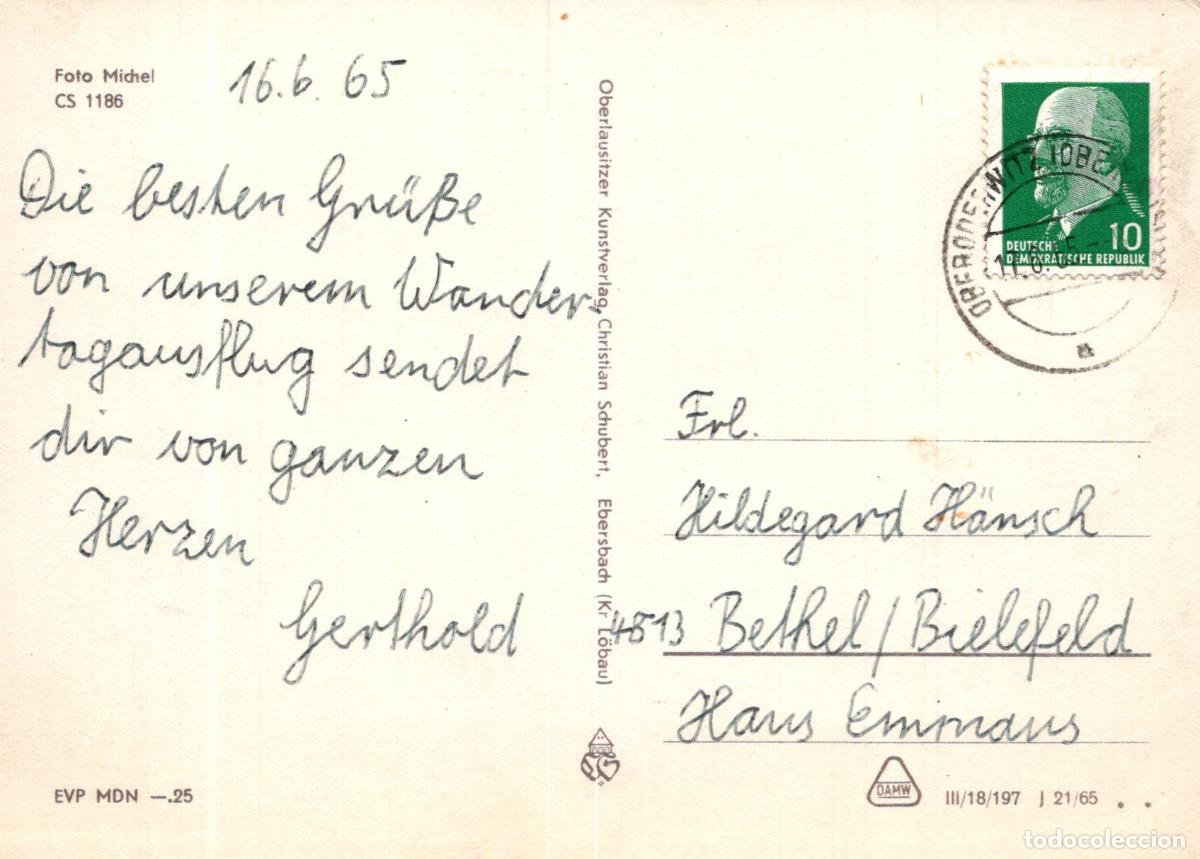 Foto Michel
CS 1186
16.6.65
Die besten Grüße
von unserem Wander-
tagausflug sendet
dir von ganzen
Herzen
Gerthold
EVP MDN —.25
Oberlausitzer Kunstverlag, Christian Schubert, Ebersbach (Kr Löbau)
10
DEUTSCHE
DEMOKRATISCHE REPUBLIK
Frl.
Hildegard Hänsch
4813 Bethel/Bielefeld
Haus Emmaus
DAMW
III/18/197 J 21/65
todocoleccion